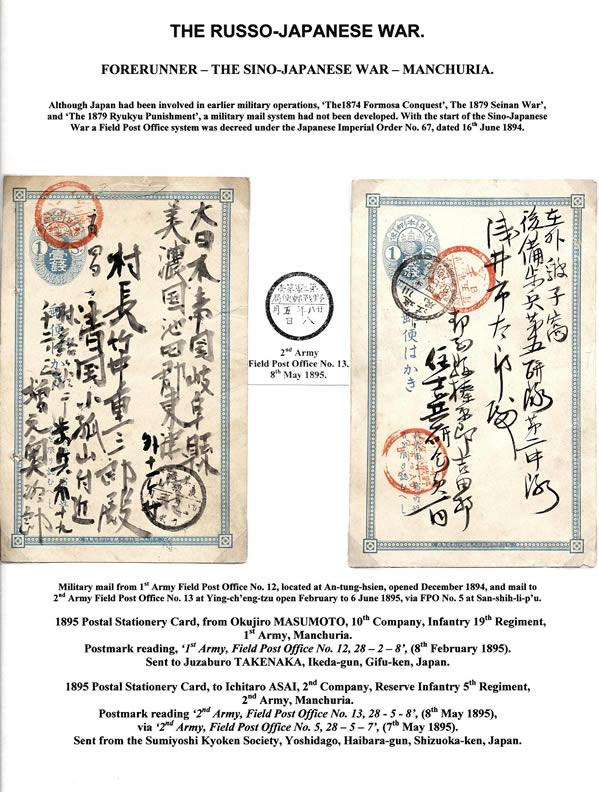 THE RUSSO-JAPANESE WAR.
FORERUNNER – THE SINO-JAPANESE WAR – MANCHURIA.
Although Japan had been involved in earlier military operations, ‘The1874 Formosa Conquest’, The 1879 Seinan War’,
and ‘The 1879 Ryukyu Punishment’, a military mail system had not been developed. With the start of the Sino-Japanese
War a Field Post Office system was decreed under the Japanese Imperial Order No. 67, dated 16th June 1894.
大日本帝国岐阜縣
美濃国池田郡東
村長竹中重三郎殿
清国小孤山付近
1
壹錢
野戰郵便局
廿八年五月
八日
2nd Army
Field Post Office No. 13.
8th May 1895.
後備歩兵第五聯隊第二中隊
浅井市太郎殿
1
郵便はかき
Military mail from 1st Army Field Post Office No. 12, located at An-tung-hsien, opened December 1894, and mail to
2nd Army Field Post Office No. 13 at Ying-ch’eng-tzu open February to 6 June 1895, via FPO No. 5 at San-shih-li-p’u.
1895 Postal Stationery Card, from Okujiro MASUMOTO, 10th Company, Infantry 19th Regiment,
1st Army, Manchuria.
Postmark reading, ‘1st Army, Field Post Office No. 12, 28 – 2 – 8’, (8th February 1895).
Sent to Juzaburo TAKENAKA, Ikeda-gun, Gifu-ken, Japan.
1895 Postal Stationery Card, to Ichitaro ASAI, 2nd Company, Reserve Infantry 5th Regiment,
2nd Army, Manchuria.
Postmark reading ‘2nd Army, Field Post Office No. 13, 28 - 5 - 8’, (8th May 1895),
via ‘2nd Army, Field Post Office No. 5, 28 – 5 – 7’, (7th May 1895).
Sent from the Sumiyoshi Kyoken Society, Yoshidago, Haibara-gun, Shizuoka-ken, Japan.